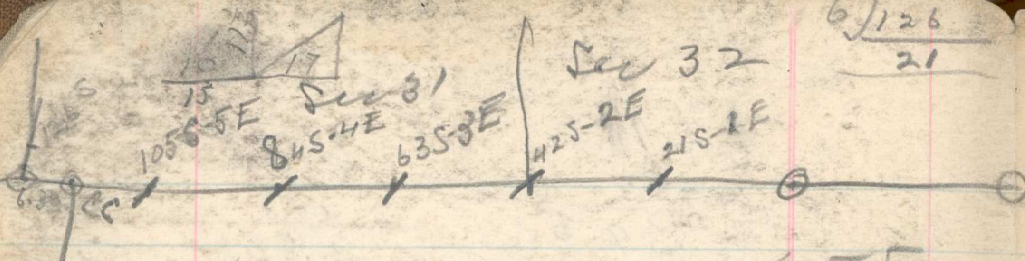 6)126
21
15
17
15
Sec 31
Sec 32
105S-5E
84S-4E
63S-3E
42S-2E
21S-1E
CC